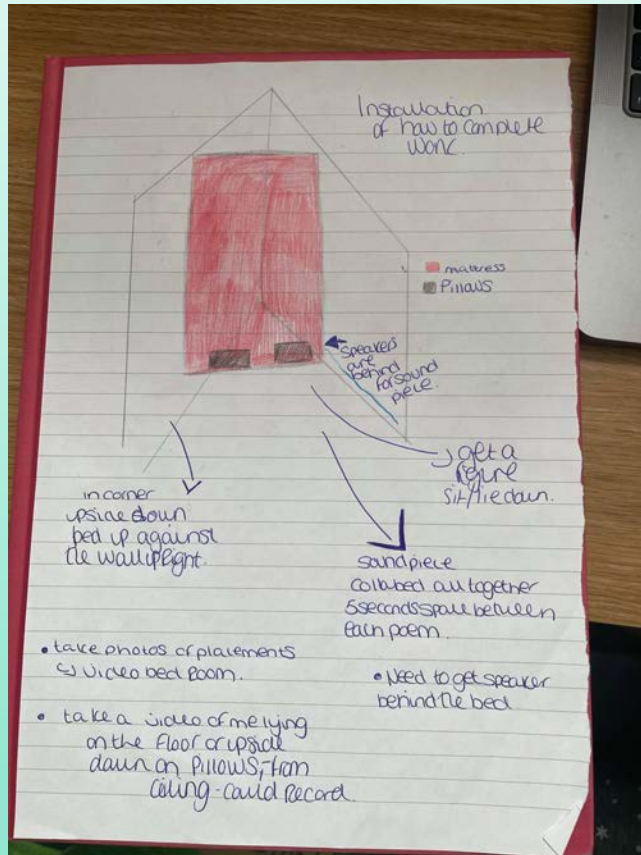 Installation
of how to complete
work.
mattress
Pillows
speakers
are
behind
for sound
piece.
get a
figure
sit/lie down.
in corner
upside down
bed up against
the wall upright.
soundpiece
collabed all together
5 seconds space between
each poem.
• take photos of placements
↳ video bed room.
• Need to get speaker
behind the bed
• take a video of me lying
on the floor or upside
down on pillows, from
ceiling - could record.